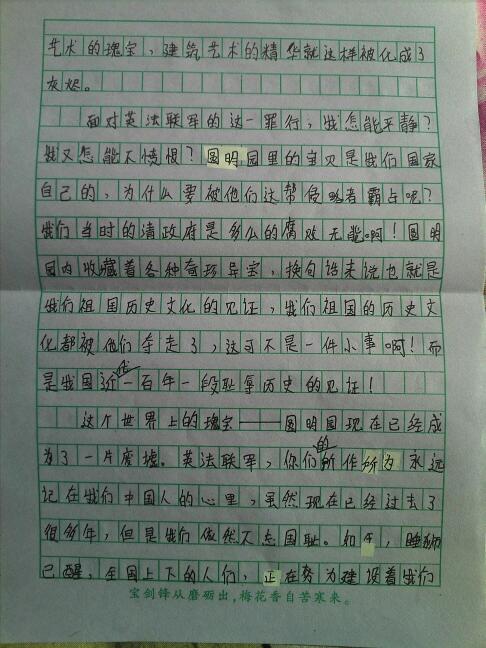 艺术的瑰宝，建筑艺术的精华就这样被化成了
灰烬。
面对英法联军的这一罪行，我怎能平静？
我又怎能不愤恨？圆明园里的宝贝是我们国家
自己的，为什么要被他们这帮侵略者霸占呢？
我们当时的清政府是多么的腐败无能啊！圆明
园内收藏着各种奇珍异宝，换句话来说也就是
我们祖国历史文化的见证，我们祖国的历史文
化都被他们夺走了，这可不是一件小事啊！而
是我国近代一百年一段耻辱历史的见证！
这个世界上的瑰宝——圆明园现在已经成
为了一片废墟。英法联军，你们的所作所为永远
记在我们中国人的心里，虽然现在已经过去了
很多年，但是我们依然不忘国耻。如今，睡狮
已醒，全国上下的人们，正在努为建设着我们
宝剑锋从磨砺出，梅花香自苦寒来。